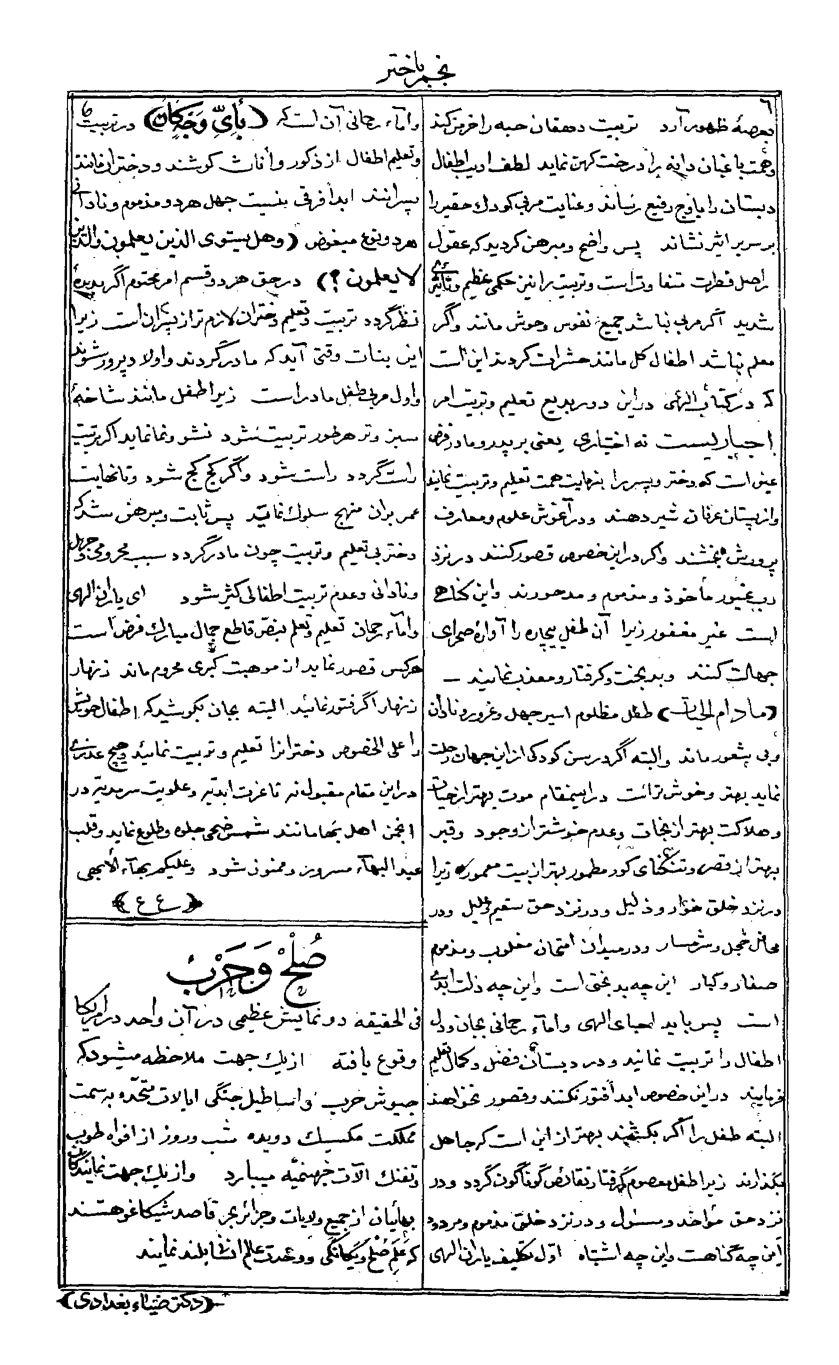 نجم باختر
٦
بعرصهٔ ظهور آرد تربیت دهقان حبه را خرمن کند
وهمت باغبان دانه را درخت کهن نماید لطف ادیب اطفال
دبستان را باوج رفیع رساند وعنایت مربی کودك حقیر را
بر سریر اثیر نشاند پس واضح ومبرهن گردید که عقول
در اصل فطرت متفاوتست وتربیت را نیز حکمی عظیم وتأثیری
شدید اگر مربی نباشد جمیع نفوس وحوش مانند واگر
معلم نباشد اطفال کل مانند حشرات گردند این است
که در کتاب الهی در این دور بدیع تعلیم وتربیت امر
اجباریست نه اختیاری یعنی بر پدر ومادر فرض
عین است که دختر وپسر را بنهایت همت تعلیم وتربیت نمایند
واز پستان عرفان شیر دهند ودر آغوش علوم ومعارف
پرورش بخشند واگر در این خصوص قصور کنند در نزد
رب غیور مأخوذ ومذموم ومدحورند واین گناهی
است غیر مغفور زیرا آن طفل بیچاره را آوارهٔ صحرای
جهالت کنند وبدبخت وگرفتار ومعذب نمایند —
(مادام الحیات) طفل مظلوم اسیر جهل وغرور ونادان
وبی شعور ماند والبته اگر در سن کودکی از این جهان رحلت
نماید بهتر وخوش‌تر است در اینمقام موت بهتر از حیات
وهلاکت بهتر از نجات وعدم خوشتر از وجود وقبر
بهتر از قصر وتنگنای گور مطمور بهتر از بیت معمور زیرا
در نزد خلق خوار وذلیل ودر نزد حق سقیم وعلیل ودر
محافل خجل وشرمسار ودر میدان امتحان مغلوب ومذموم
صغار وکبار این چه بدبختی است واین چه ذلت ابدی
است پس باید احبای الهی واماء رحمانی بجان ودل
اطفال را تربیت نمایند ودر دبستان فضل وکمال تعلیم
فرمایند در این خصوص ابدا فتور نکنند وقصور نخواهند
البته طفل را اگر بکشند بهتر از این است که جاهل
بگذارند زیرا طفل معصوم گرفتار نقائص گوناگون گردد ودر
نزد حق مؤاخذ ومسئول ودر نزد خلق مذموم ومردود
این چه گناهست واین چه اشتباه اول تکلیف یاران الهی
واماء رحمانی آن است که (بأیّ وَجهٍ کان) در تربیت
وتعلیم اطفال از ذکور وأناث کوشند ودختران مانند
پسرانند ابدا فرقی نیست جهل هر دو مذموم ونادانی
هر دو نوع مبغوض (وهل یستوی الذین یعلمون والذین
لا یعلمون؟) در حق هر دو قسم امر محتوم اگر بدیدهٔ
نظر گردد تربیت وتعلیم دختران لازم تر از پسران است زیرا
این بنات وقتی آید که مادر گردند واولاد پرور شوند
واول مربی طفل مادر است زیرا طفل مانند شاخهٔ
سبز وتر هر طور تربیت شود نشو ونما نماید اگر تربیت
راست گردد راست شود واگر کج کج شود وتا نهایت
عمر بر آن منهج سلوك نماید پس ثابت ومبرهن شد که
دختر بی تعلیم وتربیت چون مادر گردد سبب محرومی وجهل
ونادانی وعدم تربیت اطفال کثیر شود ای یاران الهی
واماء رحمان تعلیم وتعلم بنص قاطع جمال مبارك فرض است
هر کس قصور نماید از موهبت کبری محروم ماند زنهار
زنهار اگر فتور نمائید البته بجان بکوشید که اطفال خویش
را علی الخصوص دخترانرا تعلیم وتربیت نمائید وهیچ عذری
در این مقام مقبول نه تا عزت ابدیه وعلویت سرمدیه در
انجمن اهل بها مانند شمس ضحی جلوه وطلوع نماید وقلب
عبد البهاء مسرور وممنون شود وعلیکم بهاء الأبهی
(ع ع)
صُلْح وَ حَرْب
فی الحقیقه دو نمایش عظمی در آن واحد در امریکا
وقوع یافته از یك جهت ملاحظه میشود که
جیوش حرب واساطیل جنگی ایالات متحّده به سمت
مملکت مکسیك دویده شب وروز از افواه طوپ
وتفنك آلات جهنمیّه میبارد واز یك جهت نمایندگان
بهائیان از جمیع ولایات وجزائر بحر قاصد شیکاغو هستند
که عَلَم صُلح ویگانگی ووحدت عالم انسانی بلند نمایند
(دکتر ضیاء بغدادی)